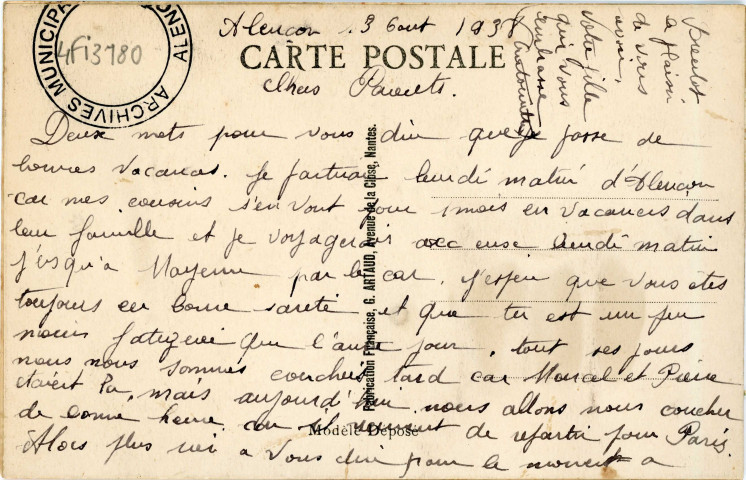 Alençon 3 Aout 1938
CARTE POSTALE
Chers Parents.
Deux mots pour vous dire que je passe de
bonnes vacances. Je partirai lundi matin d'Alençon
car mes cousins s'en vont pour 1 mois en vacances dans
leur famille et je voyagerais avec eux lundi matin
j'usqu'a Mayenne par le car. j'espère que vous êtes
toujours en bonne santé et que tu est un peu
moins fatiguée que l'autre jour. tout ses jours
nous nous sommes couchés tard car Marcel et Pierre
étaient là, mais aujourd'hui nous allons nous coucher
de bonne heure car ils viennent de repartir pour Paris.
Alors plus rien a vous dire pour le moment a
Bientot
le plaisir
de vous
avoir,
Votre fille
qui vous
embrasse
ARCHIVES MUNICIPA
ALENÇ
4Fi3780
Fabrication Française, G. ARTAUD, Avenue de la Close, Nantes.
Modèle Déposé